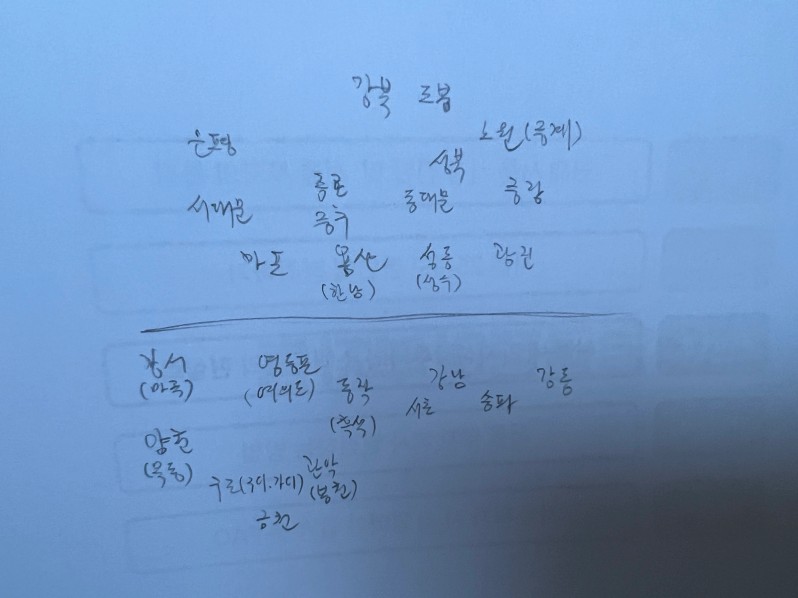 강북 도봉
은평 노원(중계)
성북
종로
서대문 동대문 중랑
중구
마포 용산 성동 광진
(한남) (성수)
강서 영등포
(마곡) (여의도) 동작 강남 강동
서초 송파
(흑석)
양천
(목동) 관악
구로(구디.가디) (봉천)
금천